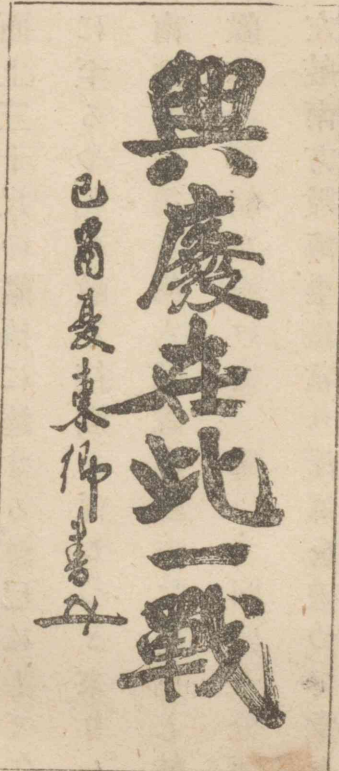 興廢在此一戰
己酉夏東鄉書